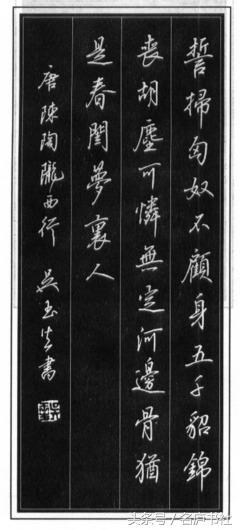 誓掃匈奴不顧身五千貂錦
喪胡塵可憐無定河邊骨猶
是春閨夢裏人
唐陳陶隴西行 吳玉生書
头条号/名庐书社